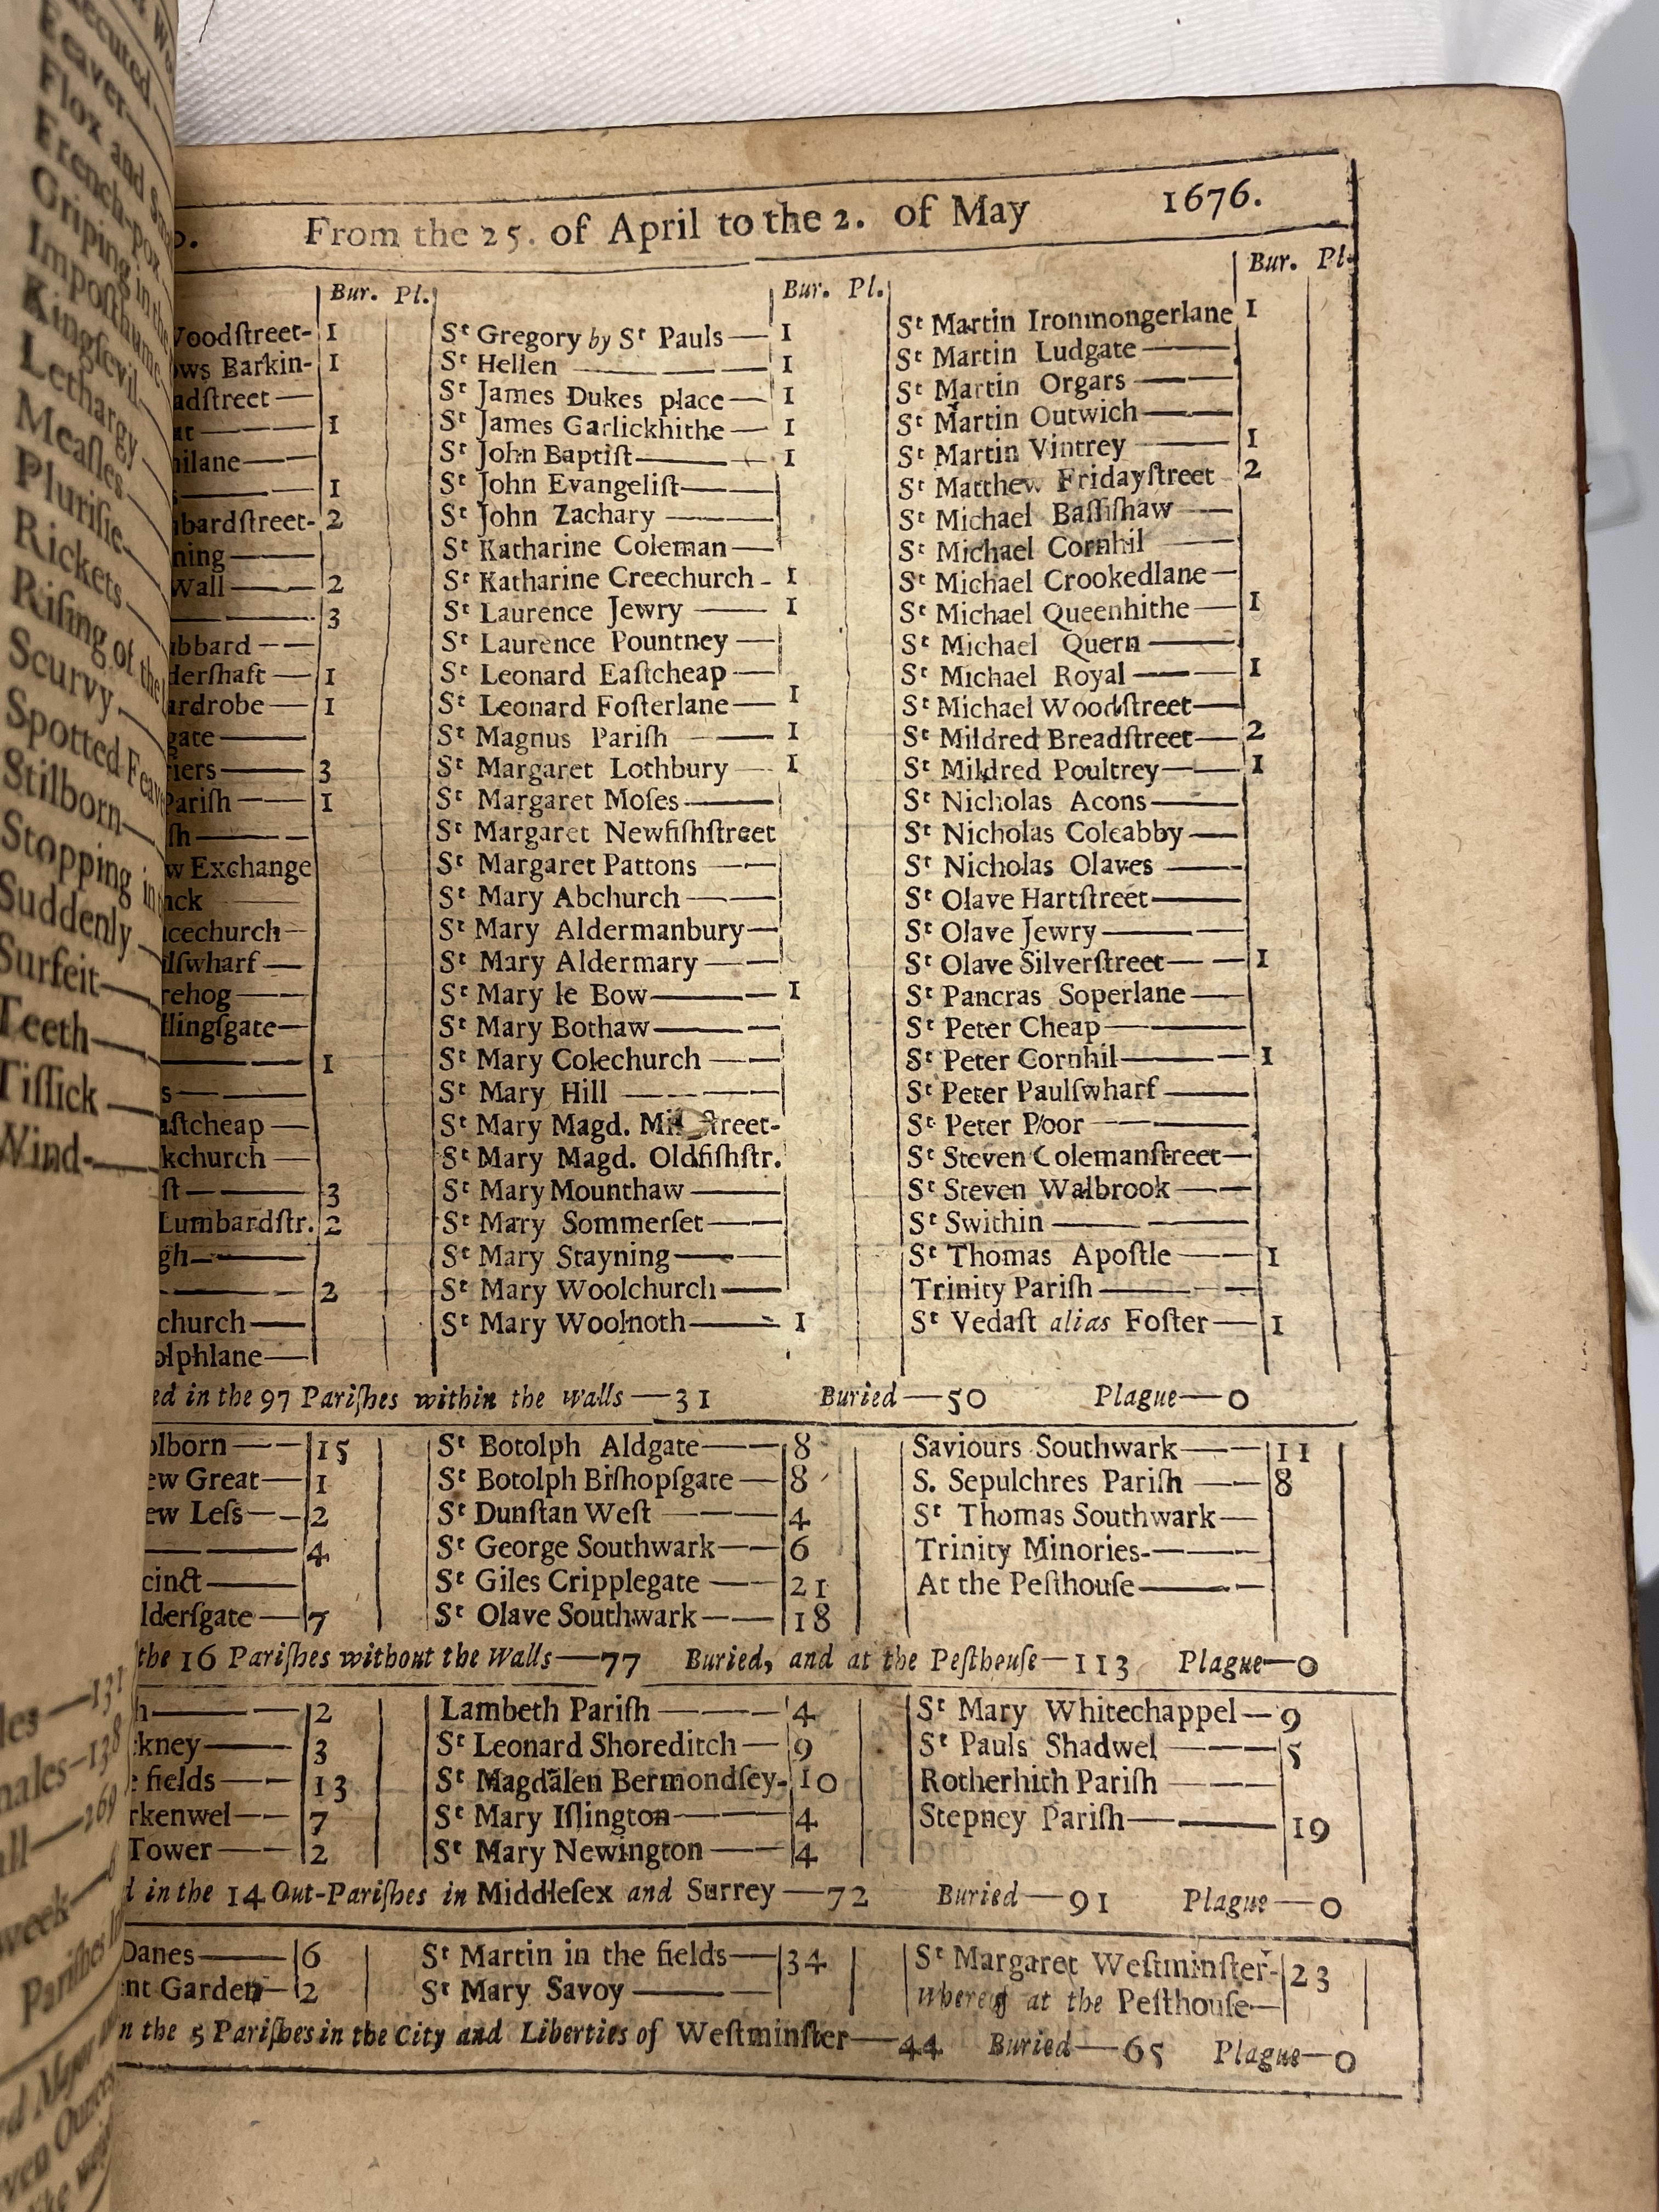 ecuted
Feaver
Flox and
French-pox
Griping in the
Impoſthume
Kingſevil
Lethargy
Meaſles
Pluriſie
Rickets
Riſing of the
Scurvy
Spotted Feav
Stilborn
Stopping in
Suddenly
Surfeit
Teeth
Tiſſick
Wind
les—131
males—138
all—269
week
Pariſhes
From the 25. of April to the 2. of May 1676.
Bur. Pl.
Woodſtreet- 1
ows Barkin- 1
adſtreet —
at — 1
hilane —
s — 1
mbardſtreet- 2
ning —
Wall — 2
— 3
ubbard —
derſhaft — 1
ardrobe — 1
gate —
riers — 3
Pariſh — 1
ſh —
w Exchange
nck —
acechurch —
lſwharf —
rehog —
llingſgate —
— 1
s —
aſtcheap —
kchurch —
ſt — 3
Lumbardſtr. 2
gh —
— 2
church —
olphlane —
Bur. Pl.
St Gregory by St Pauls — 1
St Hellen — 1
St James Dukes place — 1
St James Garlickhithe — 1
St John Baptiſt — 1
St John Evangeliſt —
St John Zachary —
St Katharine Coleman —
St Katharine Creechurch - 1
St Laurence Jewry — 1
St Laurence Pountney —
St Leonard Eaſtcheap —
St Leonard Foſterlane — 1
St Magnus Pariſh — 1
St Margaret Lothbury — 1
St Margaret Moſes —
St Margaret Newfiſhſtreet
St Margaret Pattons —
St Mary Abchurch —
St Mary Aldermanbury —
St Mary Aldermary —
St Mary le Bow — 1
St Mary Bothaw —
St Mary Colechurch —
St Mary Hill —
St Mary Magd. Mil ſtreet-
St Mary Magd. Oldfiſhſtr.
St Mary Mounthaw —
St Mary Sommerſet —
St Mary Stayning —
St Mary Woolchurch —
St Mary Woolnoth — 1
Bur. Pl.
St Martin Ironmongerlane 1
St Martin Ludgate —
St Martin Orgars —
St Martin Outwich —
St Martin Vintrey — 1
St Matthew Fridayſtreet - 2
St Michael Baſſiſhaw —
St Michael Cornhil —
St Michael Crookedlane —
St Michael Queenhithe — 1
St Michael Quern —
St Michael Royal — 1
St Michael Woodſtreet —
St Mildred Breadſtreet — 2
St Mildred Poultrey — 1
St Nicholas Acons —
St Nicholas Coleabby —
St Nicholas Olaves —
St Olave Hartſtreet —
St Olave Jewry —
St Olave Silverſtreet — 1
St Pancras Soperlane —
St Peter Cheap —
St Peter Cornhil — 1
St Peter Paulſwharf —
St Peter Poor —
St Steven Colemanſtreet —
St Steven Walbrook —
St Swithin —
St Thomas Apoſtle — 1
Trinity Pariſh —
St Vedaſt alias Foſter — 1
ed in the 97 Pariſhes within the walls — 31 Buried — 50 Plague — 0
olborn — 15
ew Great — 1
ew Leſs — 2
— 4
cinct —
lderſgate — 7
St Botolph Aldgate — 8
St Botolph Biſhopſgate — 8
St Dunſtan Weſt — 4
St George Southwark — 6
St Giles Cripplegate — 21
St Olave Southwark — 18
Saviours Southwark — 11
S. Sepulchres Pariſh — 8
St Thomas Southwark —
Trinity Minories —
At the Peſthouſe —
the 16 Pariſhes without the Walls — 77 Buried, and at the Peſthouſe — 113 Plague — 0
h — 2
ckney — 3
e fields — 13
rkenwel — 7
Tower — 2
Lambeth Pariſh — 4
St Leonard Shoreditch — 9
St Magdalen Bermondſey- 10
St Mary Iſlington — 4
St Mary Newington — 4
St Mary Whitechappel — 9
St Pauls Shadwel — 5
Rotherhith Pariſh —
Stepney Pariſh — 19
d in the 14 Out-Pariſhes in Middleſex and Surrey — 72 Buried — 91 Plague — 0
Danes — 6
ent Garden — 2
St Martin in the fields — 34
St Mary Savoy —
St Margaret Weſtminſter- 23
whereof at the Peſthouſe —
n the 5 Pariſhes in the City and Liberties of Weſtminſter — 44 Buried — 65 Plague — 0